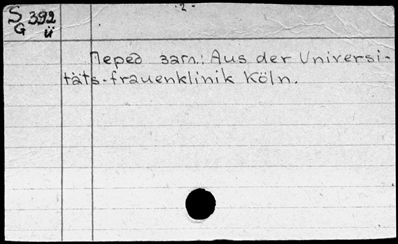 -2-
S 392
G ü
Перед загл.: Aus der Universi-
täts-frauenklinik Köln.